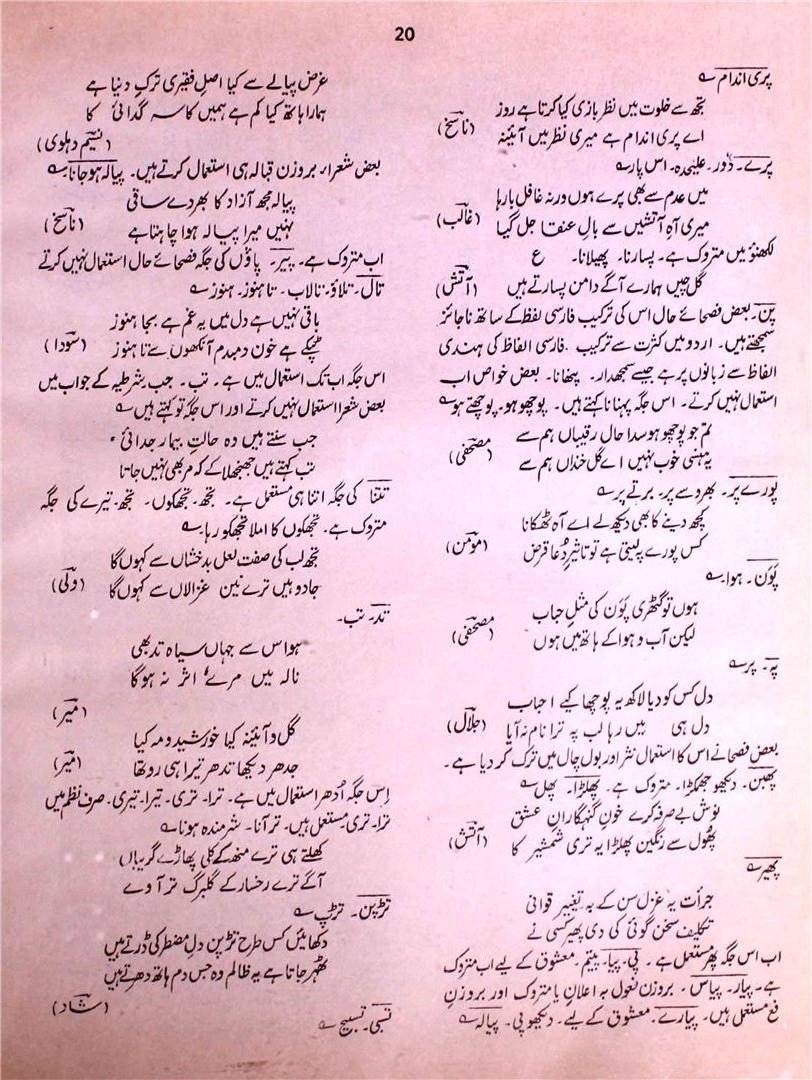 20
پری اندام ؎
تجھ سے خلوت میں نظر بازی کیا کرتا ہے روز
اے پری اندام ہے میری نظر میں آئینہ (ناسخ)
پرے۔ دُور۔ علیٰحدہ۔ اس پار ؎
میں عدم سے بھی پرے ہوں ورنہ غافل بارہا
میری آہِ آتشیں سے بالِ عنقا جل گیا (غالب)
لکھنؤ میں متروک ہے۔ پسارنا۔ پھیلانا۔ ع
گل چیں ہمارے آگے دامن پسارتے ہیں (آتش)
پن۔ بعض فصحائے حال اس کی ترکیب فارسی لفظ کے ساتھ ناجائز
سمجھتے ہیں۔ اردو میں کثرت سے ترکیب فارسی الفاظ کی ہندی
الفاظ سے زبانوں پر ہے جیسے سمجھدار۔ پنھانا۔ بعض خواص اب
استعمال نہیں کرتے۔ اس جگہ پہنانا کہتے ہیں۔ پوچھو ہو۔ پوچھتے ہو ؎
تم جو پوچھو ہو سدا حال رقیباں ہم سے
یہ ہنسی خوب نہیں اے گل خنداں ہم سے (مصحفی)
پورے پر۔ بھروسے پر۔ برتے پر ؎
کچھ دینے کا بھی دیکھ لے اے آہ ٹھکانا
کس پورے پہ لیتی ہے تو تاثیرِ دُعا قرض (مومن)
پَوَن۔ ہوا ؎
ہوں تو گٹھری پَوَن کی مثلِ حباب
لیکن آب و ہوا کے ہاتھ میں ہوں (مصحفی)
پہ۔ پر ؎
دل کس کو دیا لاکھ یہ پوچھا کیے احباب
دل ہی میں رہا لب پہ ترا نام نہ آیا (جلال)
بعض فصحا نے اس کا استعمال نثر اور بول چال میں ترک کر دیا ہے۔
پھبن۔ دیکھو جھمکڑا۔ متروک ہے۔ پھلڑا۔ پھل ؎
نوش بے صرفہ کرے خونِ گنہگارانِ عشق
پھُول سے رنگین پھلڑا یہ تری شمشیر کا (آتش)
پھیر ؎
جرأت یہ غزل سن کے بہ تغییر قوافی
تکلیف سخن گوئی کی دی پھیر کسی نے
اب اس جگہ پھر مستعمل ہے۔ پی۔ پیا۔ پیتم۔ معشوق کے لیے اب متروک
ہے۔ پیار۔ پیاس۔ بروزن فعول بہ اعلان یا متروک اور بروزن
فع مستعمل ہیں۔ پیارے۔ معشوق کے لیے۔ دیکھو پی۔ پیالہ ؎
غرض پیالے سے کیا اصلِ فقیری ترکِ دنیا ہے
ہمارا ہاتھ کیا کم ہے ہمیں کاسہ گدائی کا
(نسیم دہلوی)
بعض شعراء بروزن قبالہ ہی استعمال کرتے ہیں۔ پیالہ ہو جانا ؎
پیالہ مجھ آزاد کا بھر دے ساقی
نہیں میرا پیالہ ہوا چاہتا ہے (ناسخ)
اب متروک ہے۔ پیر۔ پاؤں کی جگہ فصحائے حال استعمال نہیں کرتے
تال۔ تلاؤ۔ تالاب۔ تاہنوز۔ ہنوز ؎
باقی نہیں ہے دل میں یہ غم ہے بجا ہنوز
ٹپکے ہے خون دمبدم آنکھوں سے تا ہنوز (سودا)
اس جگہ اب تک استعمال میں ہے۔ تب۔ جب بشرطیہ کے جواب میں
بعض شعرا استعمال نہیں کرتے اور اس جگہ تو کہتے ہیں ؎
جب سنتے ہیں وہ حالتِ بیمار جدائی
تب کہتے ہیں جھنجھلا کے کہ مر بھی نہیں جاتا
تتنا کی جگہ اتنا ہی مستعمل ہے۔ تجھ۔ تجھکوں۔ تجھ۔ تیرے کی جگہ
متروک ہے۔ تجھکوں کا املا تجھکو رہا ؎
تجھ لب کی صفت لعل بدخشاں سے کہوں گا
جادو ہیں ترے نین غزالاں سے کہوں گا (ولی)
تد۔ تب۔
ہو اس سے جہاں سیاہ تد بھی
نالہ میں مرے اثر نہ ہوگا
(میر)
گل و آئینہ کیا خورشید و مہ کیا
جدھر دیکھا تدھر تیرا ہی رو تھا (میر)
اِس جگہ اُدھر استعمال میں ہے۔ ترا۔ تری۔ تیرا۔ تیری۔ صرف نظم میں
ترا۔ تری مستعمل ہیں۔ تر آنا۔ شرمندہ ہونا ؎
کھلتے ہی ترے منھ کے کلی پھاڑے گریباں
آگے ترے رخسار کے گلبرگ تر آوے
تڑپن۔ تڑپ ؎
دکھائیں کس طرح تڑپن دلِ مضطر کی ڈرتے ہیں
ٹھہر جاتا ہے یہ ظالم وہ جس دم ہاتھ دھرتے ہیں
(شاد)
تسبی۔ تسبیح ؎